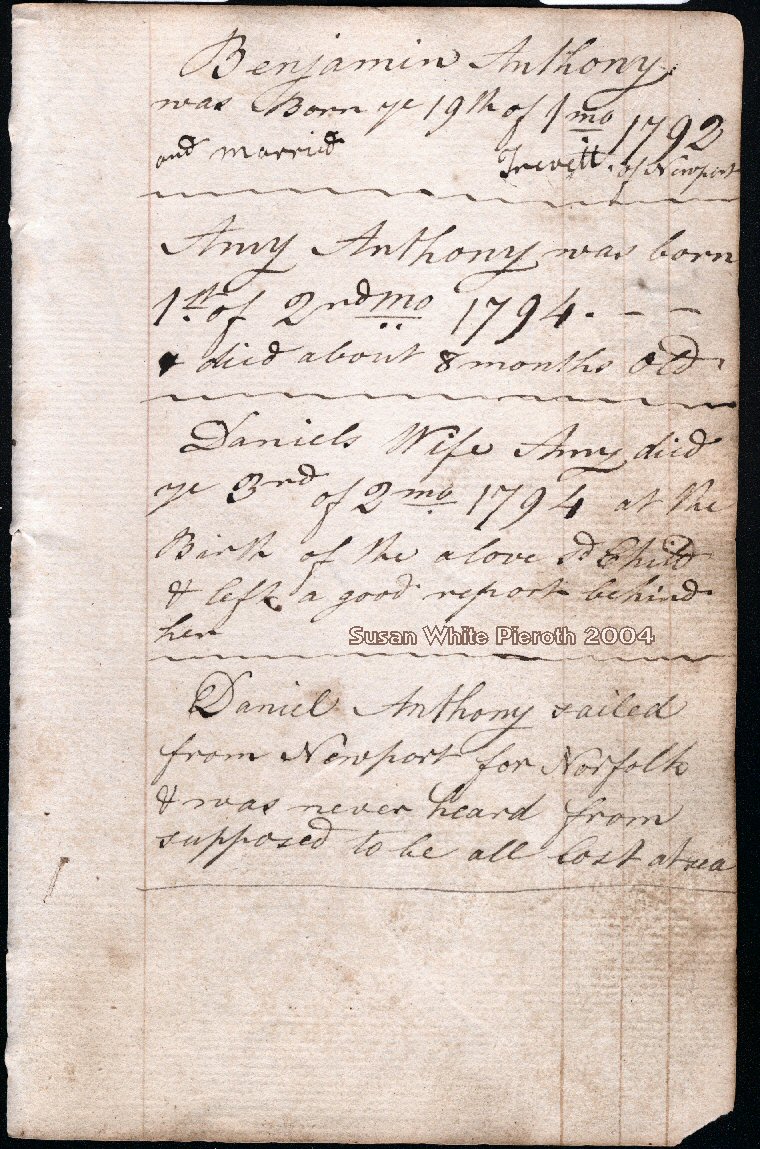 Benjamin Anthony
was Born ye 19th of 1 mo 1792
and married Trevett of Newport
Amy Anthony was born
1st of 2nd mo 1794. - -
& died about 8 months old
Daniels Wife Amy died
ye 3rd of 2 mo 1794 at the
Birth of the above sd Child
& left a good report behind
her
Susan White Pieroth 2004
Daniel Anthony sailed
from Newport for Norfolk
& was never heard from
supposed to be all lost at sea